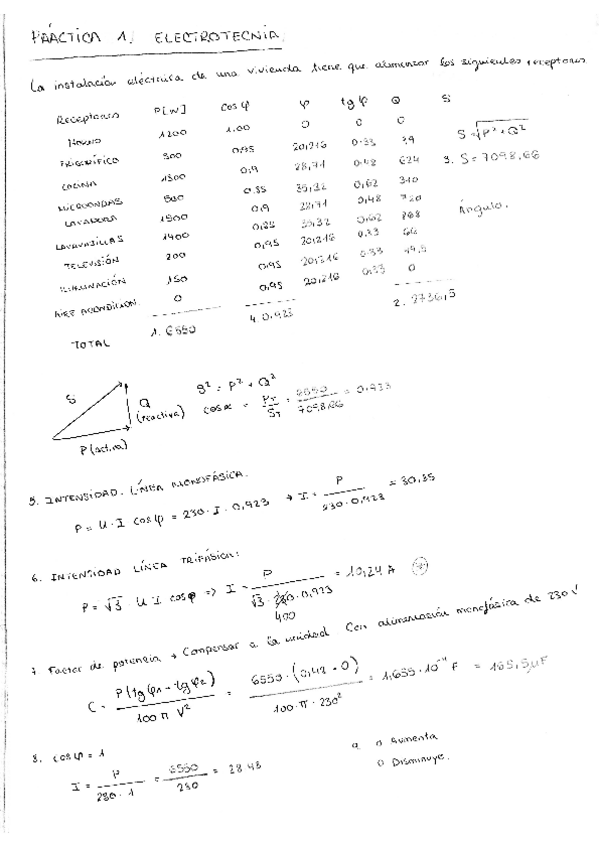 PRÁCTICA 1. ELECTROTECNIA
La instalación eléctrica de una vivienda tiene que alimentar los siguientes receptores
Receptores P[W] cos φ φ tg φ Q S
Horno 1200 1.00 0 0 0
FRIGORÍFICO 300 0,95 20,216 0.33 S = √P²+Q²
COCINA 1300 0,9 28,71 0.48 624 3. S = 7098,66
MICROONDAS 500 0.85 35,32 0,62 310
LAVADORA 1500 0,9 28,71 0,48 720 Ángulo.
LAVAVAJILLAS 1400 0,85 35.32 0,62 868
TELEVISIÓN 200 0,95 20,216 0.33 66
ILUMINACIÓN 150 0,95 20,216 0.33 49,5
AIRE ACONDICION. 0 0,95 20,216 0,33 0
TOTAL 1. 6550 4. 0.923 2. 2736,5
S
Q (reactiva)
P (activa)
S² = P² + Q²
cos α = PT / ST = 6550 / 7098.66 = 0.923
5. INTENSIDAD. LÍNEA MONOFÁSICA.
P = U · I cos φ = 230 · I · 0,923 → I = P / 230 · 0.923 = 30,85
6. INTENSIDAD LÍNEA TRIFÁSICA:
P = √3 U I cos φ => I = P / √3 · 230 · 0.923 = 10,24 A
400
7. Factor de potencia → Compensar a la unidad. Con alimentación monofásica de 230 V
C = P (tg φ1 - tg φ2) / 100 π V² = 6550 · (0,42 - 0) / 100 · π · 230² = 1,655 · 10⁻⁴ F = 165,5 μF
8. cos φ = 1
I = P / 230 · 1 = 6550 / 230 = 28.48
9. o Aumenta
o Disminuye.